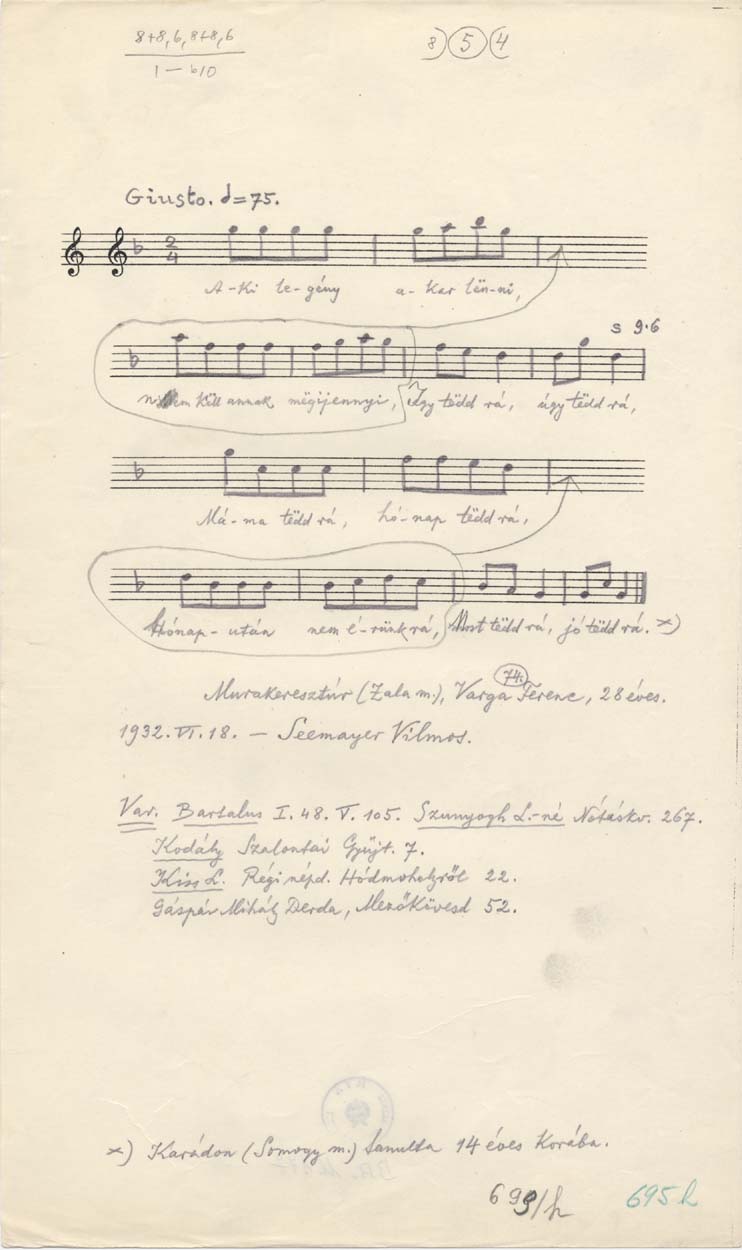 8+8, 6, 8+8, 6
1 — b10
8) 5 (4
Giusto. d=75.
2
4
A-ki le-gény a-kar lën-ni,
s 9.6
këll annak mëgijennyi, Így tëdd rá, úgy tëdd rá,
Má-ma tëdd rá, hó-nap tëdd rá,
Hónap-után nem é-rünk rá, Most tëdd rá, jó tëdd rá. x)
74.
Murakeresztúr (Zala m.), Varga Ferenc, 28 éves.
1932. VI. 18. — Seemayer Vilmos.
Var. Bartalus I. 48. V. 105. Szunyogh L.-né Nótáskv. 267.
Kodály Szalontai Gyüjt. 7.
Kiss L. Régi népd. Hódmvhelyről 22.
Gáspár Mihály Derda, Mezőkövesd 52.
x) Karádon (Somogy m.) tanulta 14 éves korába.
699/h
695 h